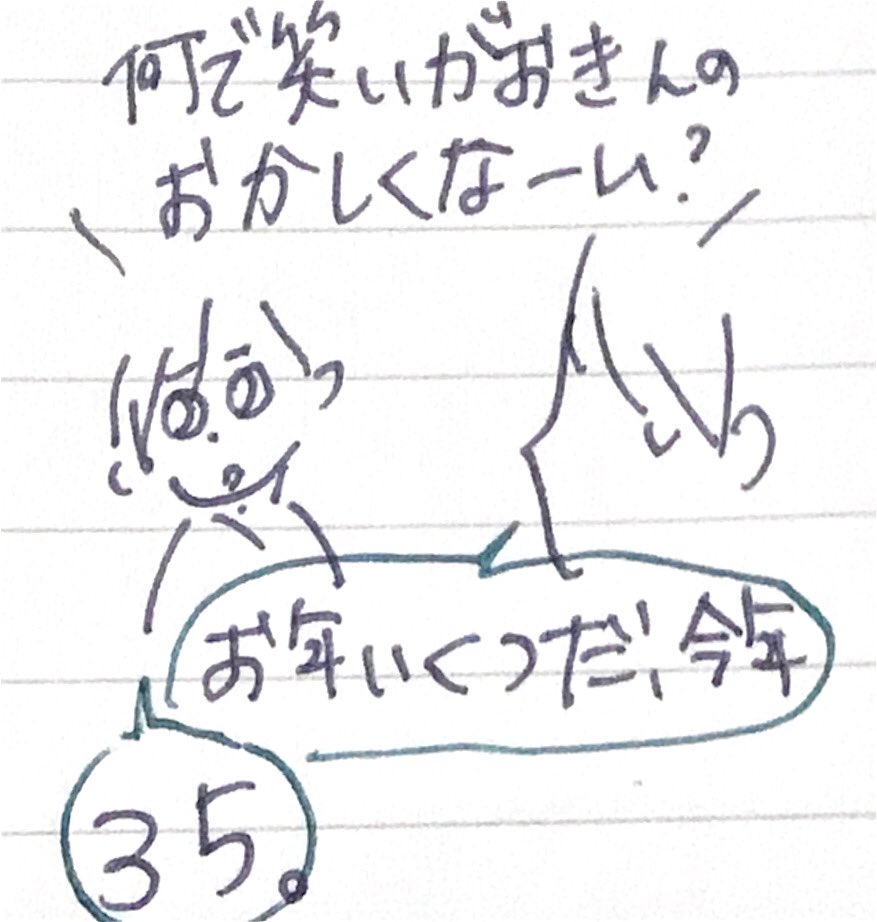 何で笑いがおきんの
おかしくなーい?
お年いくつだ、今年
35。